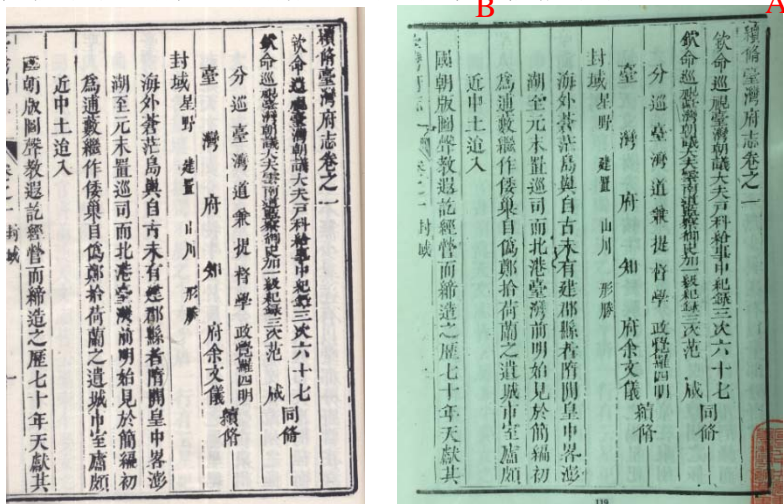 續脩臺灣府志卷之一
欽命巡視臺灣朝議大夫戶科給事中紀錄三次六十七
欽命巡視臺灣朝議大夫雲南道監察御史加一級紀錄三次范咸
同脩
分巡臺灣道兼提督學政覺羅四明
臺灣府知府余文儀
續脩
封域 星野 建置 山川 形勝
海外蒼茫島嶼自古未有建郡縣者隋開皇中畧澎
湖至元末置巡司而北港臺灣前明始見於簡編初
為逋藪繼作倭巢自偽鄭拾荷蘭之遺城市室廬頗
近中土迨入
國朝版圖聲教遐訖經營而締造之歷七十年天獻其
卷之一 封域
一
B
A
續脩臺灣府志卷之一
欽命巡視臺灣朝議大夫戶科給事中紀錄三次六十七
欽命巡視臺灣朝議大夫雲南道監察御史加一級紀錄三次范咸
同脩
分巡臺灣道兼提督學政覺羅四明
臺灣府知府余文儀
續脩
封域 星野 建置 山川 形勝
海外蒼茫島嶼自古未有建郡縣者隋開皇中畧澎
湖至元末置巡司而北港臺灣前明始見於簡編初
為逋藪繼作倭巢自偽鄭拾荷蘭之遺城市室廬頗
近中土迨入
國朝版圖聲教遐訖經營而締造之歷七十年天獻其
卷之一 封域
一